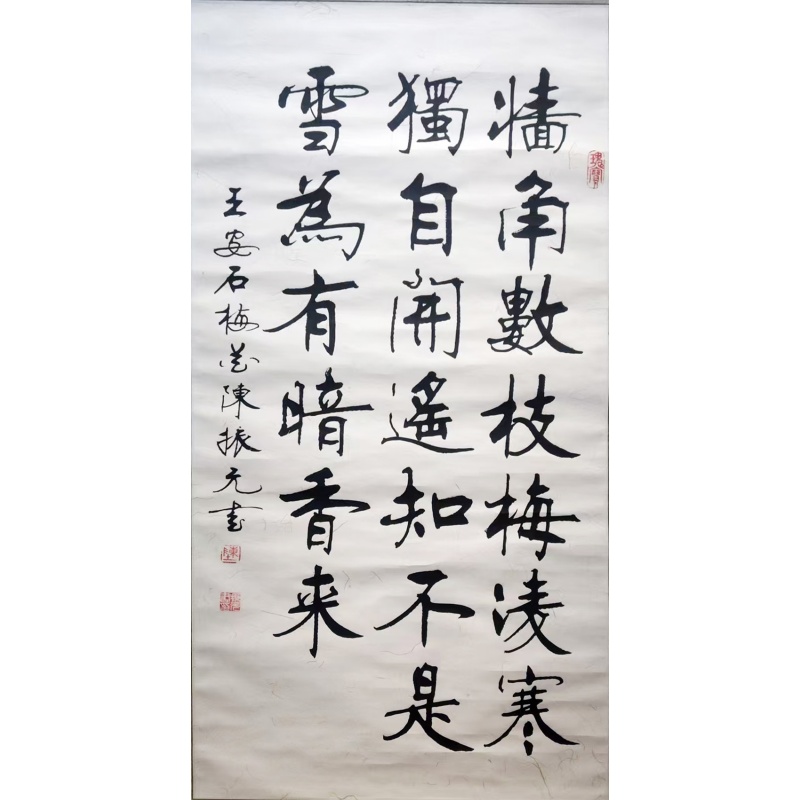 牆角數枝梅凌寒
獨自開遙知不是
雪為有暗香来
王安石梅花陳振元書